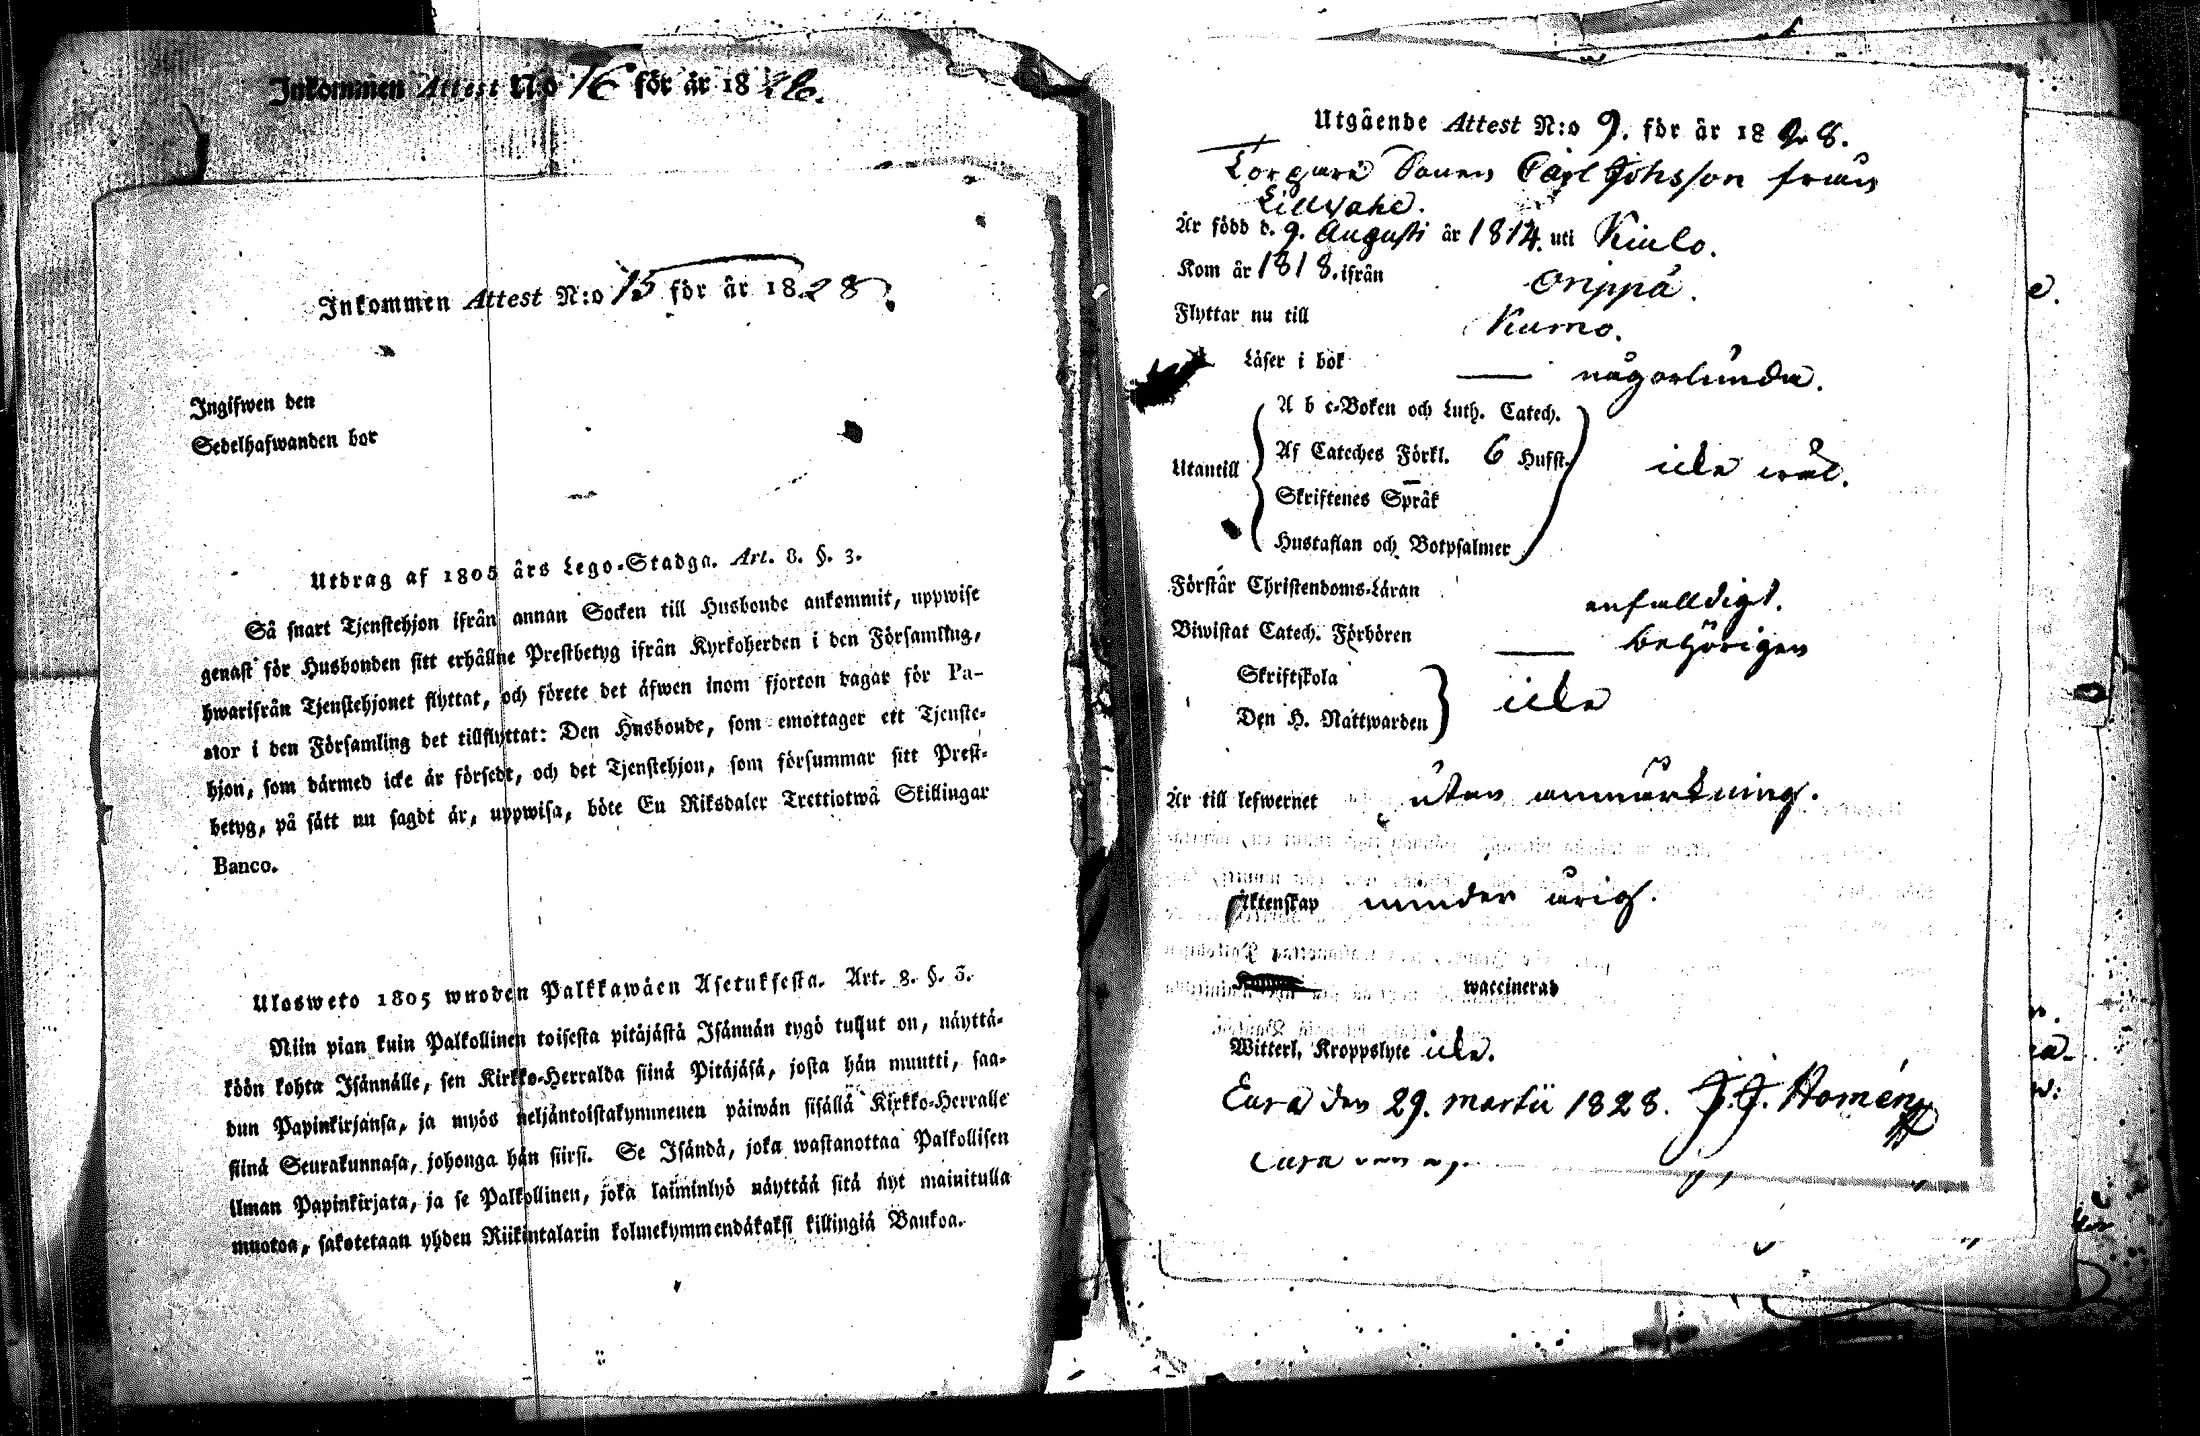 Inkommen Attest N:o 76 för år 18 26.
Inkommen Attest N:o 15 för år 1828.
Ingifwen den
Sedelhafwanden bor
Utdrag af 1805 års Lego-Stadga. Art. 8. §. 3.
Så snart Tjenstehjon ifrån annan Socken till Husbonde ankommit, uppwise
genast för Husbonden sitt erhållne Prestbetyg ifrån Kyrkoherden i den Församling,
hwarifrån Tjenstehjonet flyttat, och förete det äfwen inom fjorton dagar för Pa-
stor i den Församling det tillflyttat: Den Husbonde, som emottager ett Tjenste-
hjon, som därmed icke är försedt, och det Tjenstehjon, som försummar sitt Prest-
betyg, på sätt nu sagdt är, uppwisa, böte En Riksdaler Trettiotwå Skillingar
Banco.
Ulosweto 1805 wuoden Palkkawäen Asetuksesta. Art. 8. §. 3.
Niin pian kuin Palkollinen toisesta pitäjästä Isännän tygö tullut on, näyttä-
köön kohta Isännälle, sen Kirkko-Herralda siinä Pitäjäsä, josta hän muutti, saa-
dun Papinkirjansa, ja myös neljäntoistakymmenen päiwän sisällä Kirkko-Herralle
siinä Seurakunnasa, johonga hän siirsi. Se Isändä, joka wastanottaa Palkollisen
ilman Papinkirjata, ja se Palkollinen, joka laiminlyö näyttää sitä nyt mainitulla
muotoa, sakotetaan yhden Riikintalarin kolmekymmendäkaksi killingiä Bankoa.
Utgående Attest N:o 9. för år 1828.
Torpare Sonen Carl Johsson från
Är född d. 9. Augusti år 1814. uti Kiulo.
Kom år 1818. ifrån Orippä.
Flyttar nu till Kumo.
Läser i bok någorlunda.
Utantill
A b c-Boken och Luth. Catech.
Af Cateches Förkl. 6 Hufst.
Skriftenes Språk
Hustaflan och Botpsalmer
icke wäl.
Förstår Christendoms-Läran enfalldigt.
Biwistat Catech. Förhören behörigen
Skriftskola
Den H. Nattwarden
icke
Är till lefwernet utan anmärkning.
Äktenskap minder årig.
waccinerad
Witterl. Kroppslyte icke.
Eura den 29. martii 1828. J. J. Homén